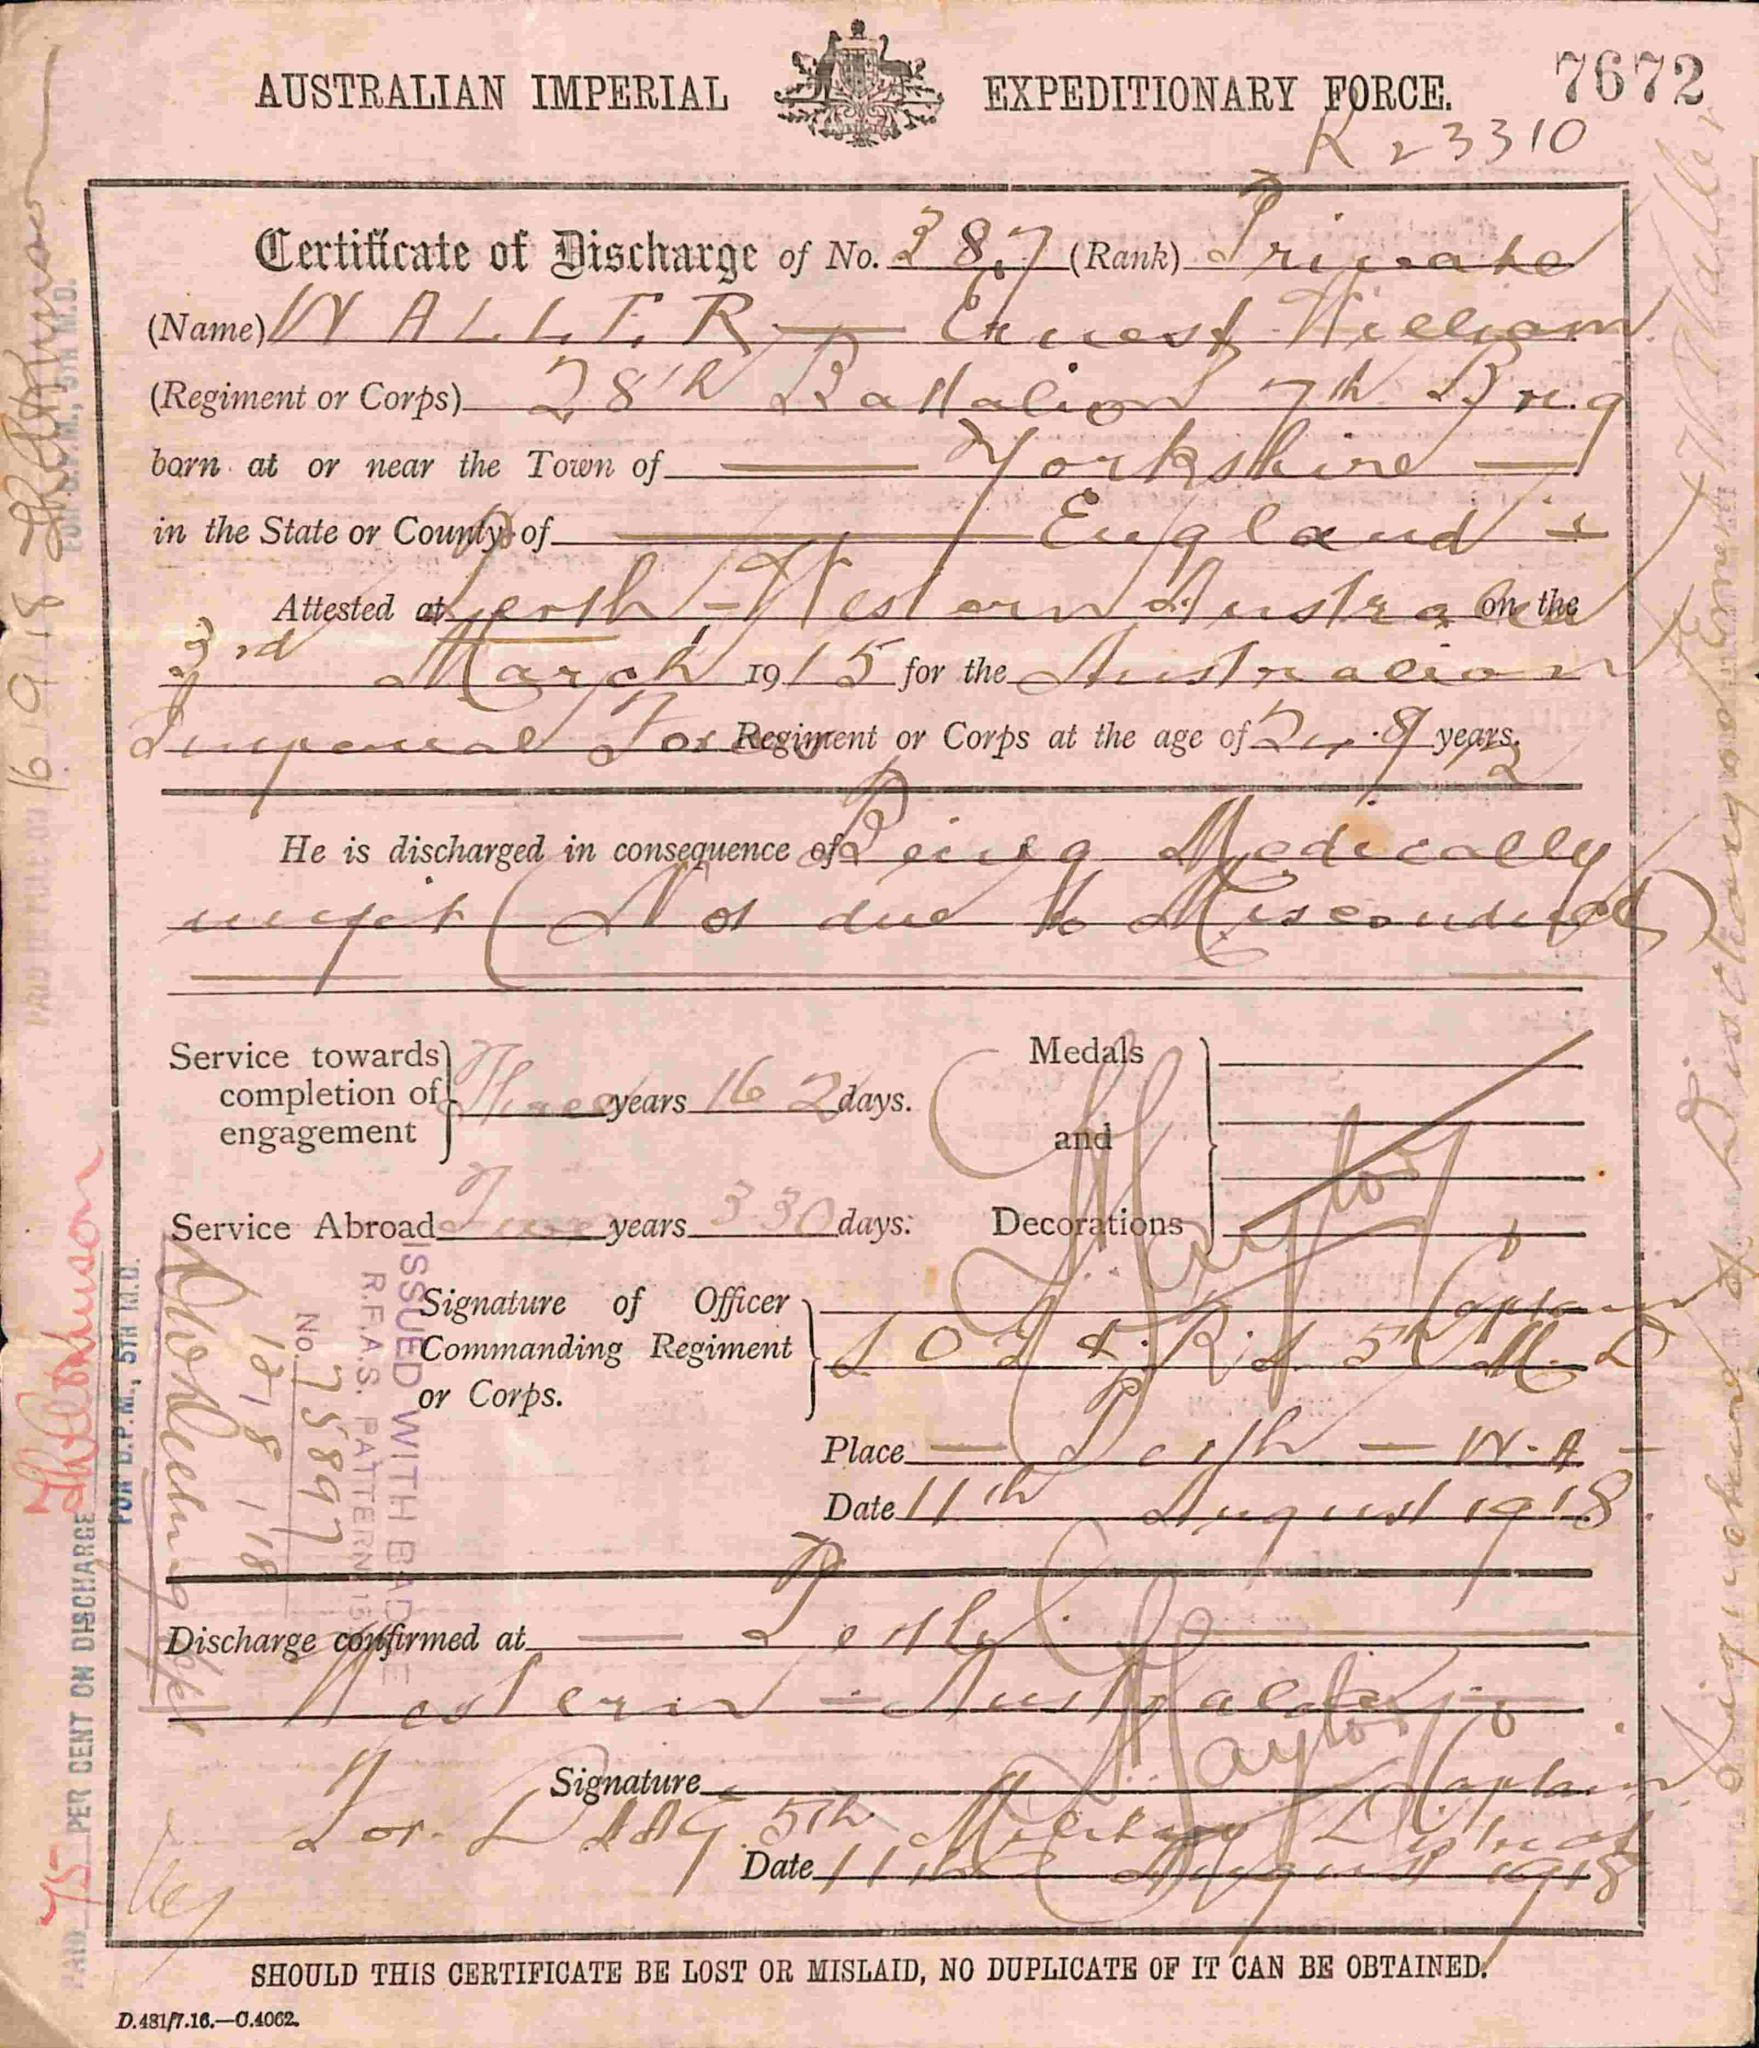 AUSTRALIAN IMPERIAL EXPEDITIONARY FORCE. 7672
R 23310
Certificate of Discharge of No. 387 (Rank) Private
(Name) WALLER — Ernest William
(Regiment or Corps) 28th Battalion 7th
born at or near the Town of — Yorkshire —
in the State or County of — England —
Attested at Perth - Western Australia on the
3rd March 1915 for the Australian
Imperial Force Regiment or Corps at the age of years.
He is discharged in consequence of Being Medically
unfit (Not due to Misconduct)
Service towards completion of engagement Three years 162 days.
Medals and Decorations
Service Abroad Two years 330 days.
Signature of Officer Commanding Regiment or Corps. Captain
5th M. D
Place — Perth — W.A —
Date 11th August 1918
Discharge confirmed at — Perth
Western - Australia
Signature Captain
For 5th Military District
Date 11th August 1918
SHOULD THIS CERTIFICATE BE LOST OR MISLAID, NO DUPLICATE OF IT CAN BE OBTAINED.
D.481/7.16.—C.4062.
ISSUED WITH BADGE
R.F.A.S. PATTERN
No. 75897
PAID 75 PER CENT ON DISCHARGE
FOR D.P.M., 5TH M.D.
16 9 18
FOR D.P.M., 5TH M.D.
Signature of Discharged Soldier